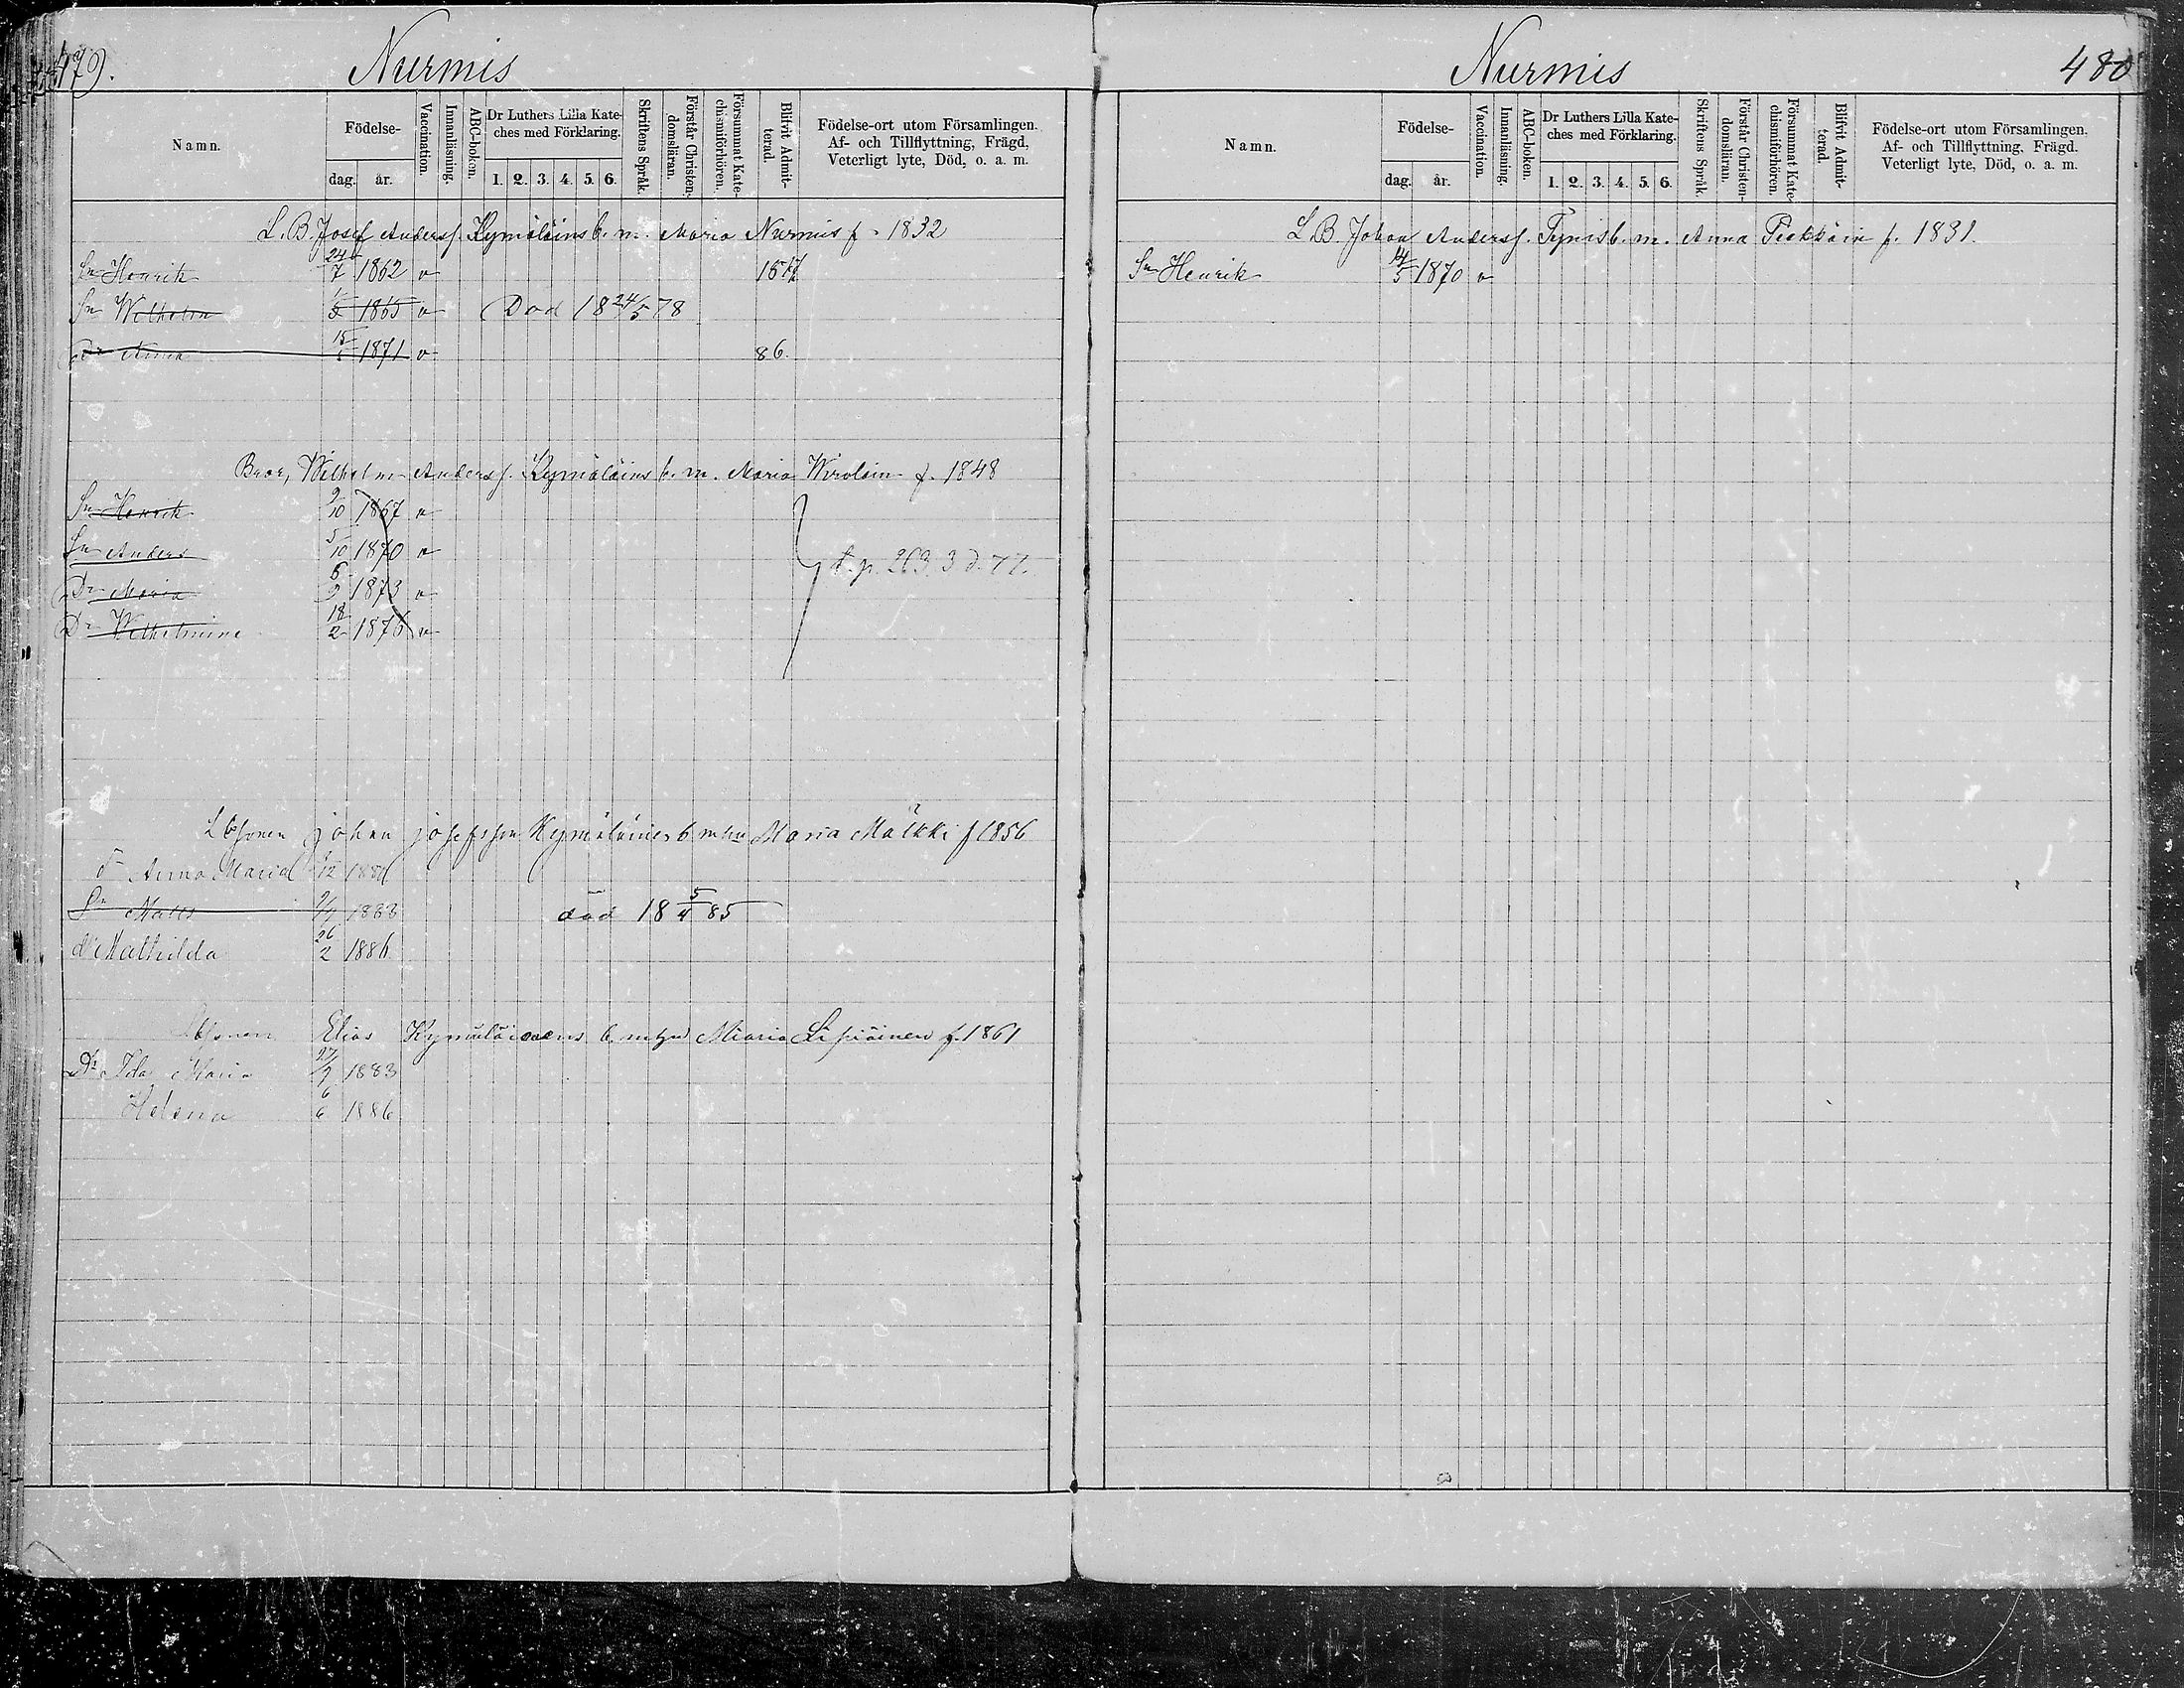 479.
Nurmis
Namn.
Födelse-
dag.
år.
Vaccination.
Innanläsning.
ABC-boken.
Dr Luthers Lilla Kate-
ches med Förklaring.
1. 2. 3. 4. 5. 6.
Skriftens Språk.
Förstår Christen-
domsläran.
Försummat Kate-
chismiförhören.
Blifvit Admit-
terad.
Födelse-ort utom Församlingen.
Af- och Tillflyttning, Frägd,
Veterligt lyte, Död, o. a. m.
L. B. Josef Anders s. Kymäläins b. m. Maria Nurmis f. 1832
Sn Henrik 24/7 1862 v
Sn Wilhelm 1865 v Död 18 24/5 78
Dr Anna 1871 v 86.
Bror, Wilhelm Anders s. Kymäläins b. m. Maria Wirolain f. 1848
Sn Henrik 9/10 1867 v
Sn Anders 5/10 1870 v
Dr Maria 6/9 1873 v
t. p. 263. 3 d. 77.
Dr Wilhelmina 18/2 1876 v
Johan Josefsson Kymäläines b m hu Maria Mälkki f 1856
dr Anna Maria
Sn Matts 1883 död 18 5/4 85
dr Mathilda 26/2 1886
Elias Kymäläinens b. Maria Lipiäinen f. 1861
Dr Ida Maria 27/7 1883
Helena 6/6 1886
Nurmis
480
Namn.
Födelse-
dag.
år.
Vaccination.
Innanläsning.
ABC-boken.
Dr Luthers Lilla Kate-
ches med Förklaring.
1. 2. 3. 4. 5. 6.
Skriftens Språk.
Förstår Christen-
domsläran.
Försummat Kate-
chismiförhören.
Blifvit Admit-
terad.
Födelse-ort utom Församlingen.
Af- och Tillflyttning, Frägd.
Veterligt lyte, Död, o. a. m.
L. B. Johan Anders s. Tynis b. m. Anna Pekkäin f. 1831.
Sn Henrik 14/5 1870 v